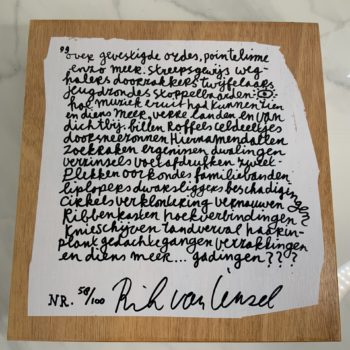 "over gevestigde ordes, pointelisme
enzo meer. streepsgewijs weg-
halers doorzakkers twijfelaars
jeugdzondes stoppelbaarden
hol muziek eruit had kunnen zien
en diens meer, verre landen en van
dichtbij. billen koffers celdeeltjes
doorsneezonnen hiernamaalsen
zoekraken ergenissen dwalingen
verzinsels voetafdrukken zweet-
plekken oorkondes familiebanden
liplopers dwarsliggers beschadigingen
cirkels verklontering vernauwen
Ribbenkasten hoekverbindingen
Knieschijven tandverval haarin-
plant gedachtegangen verzakkingen
en diens meer... gadingen???
NR. 58/100 Rik van Iersel